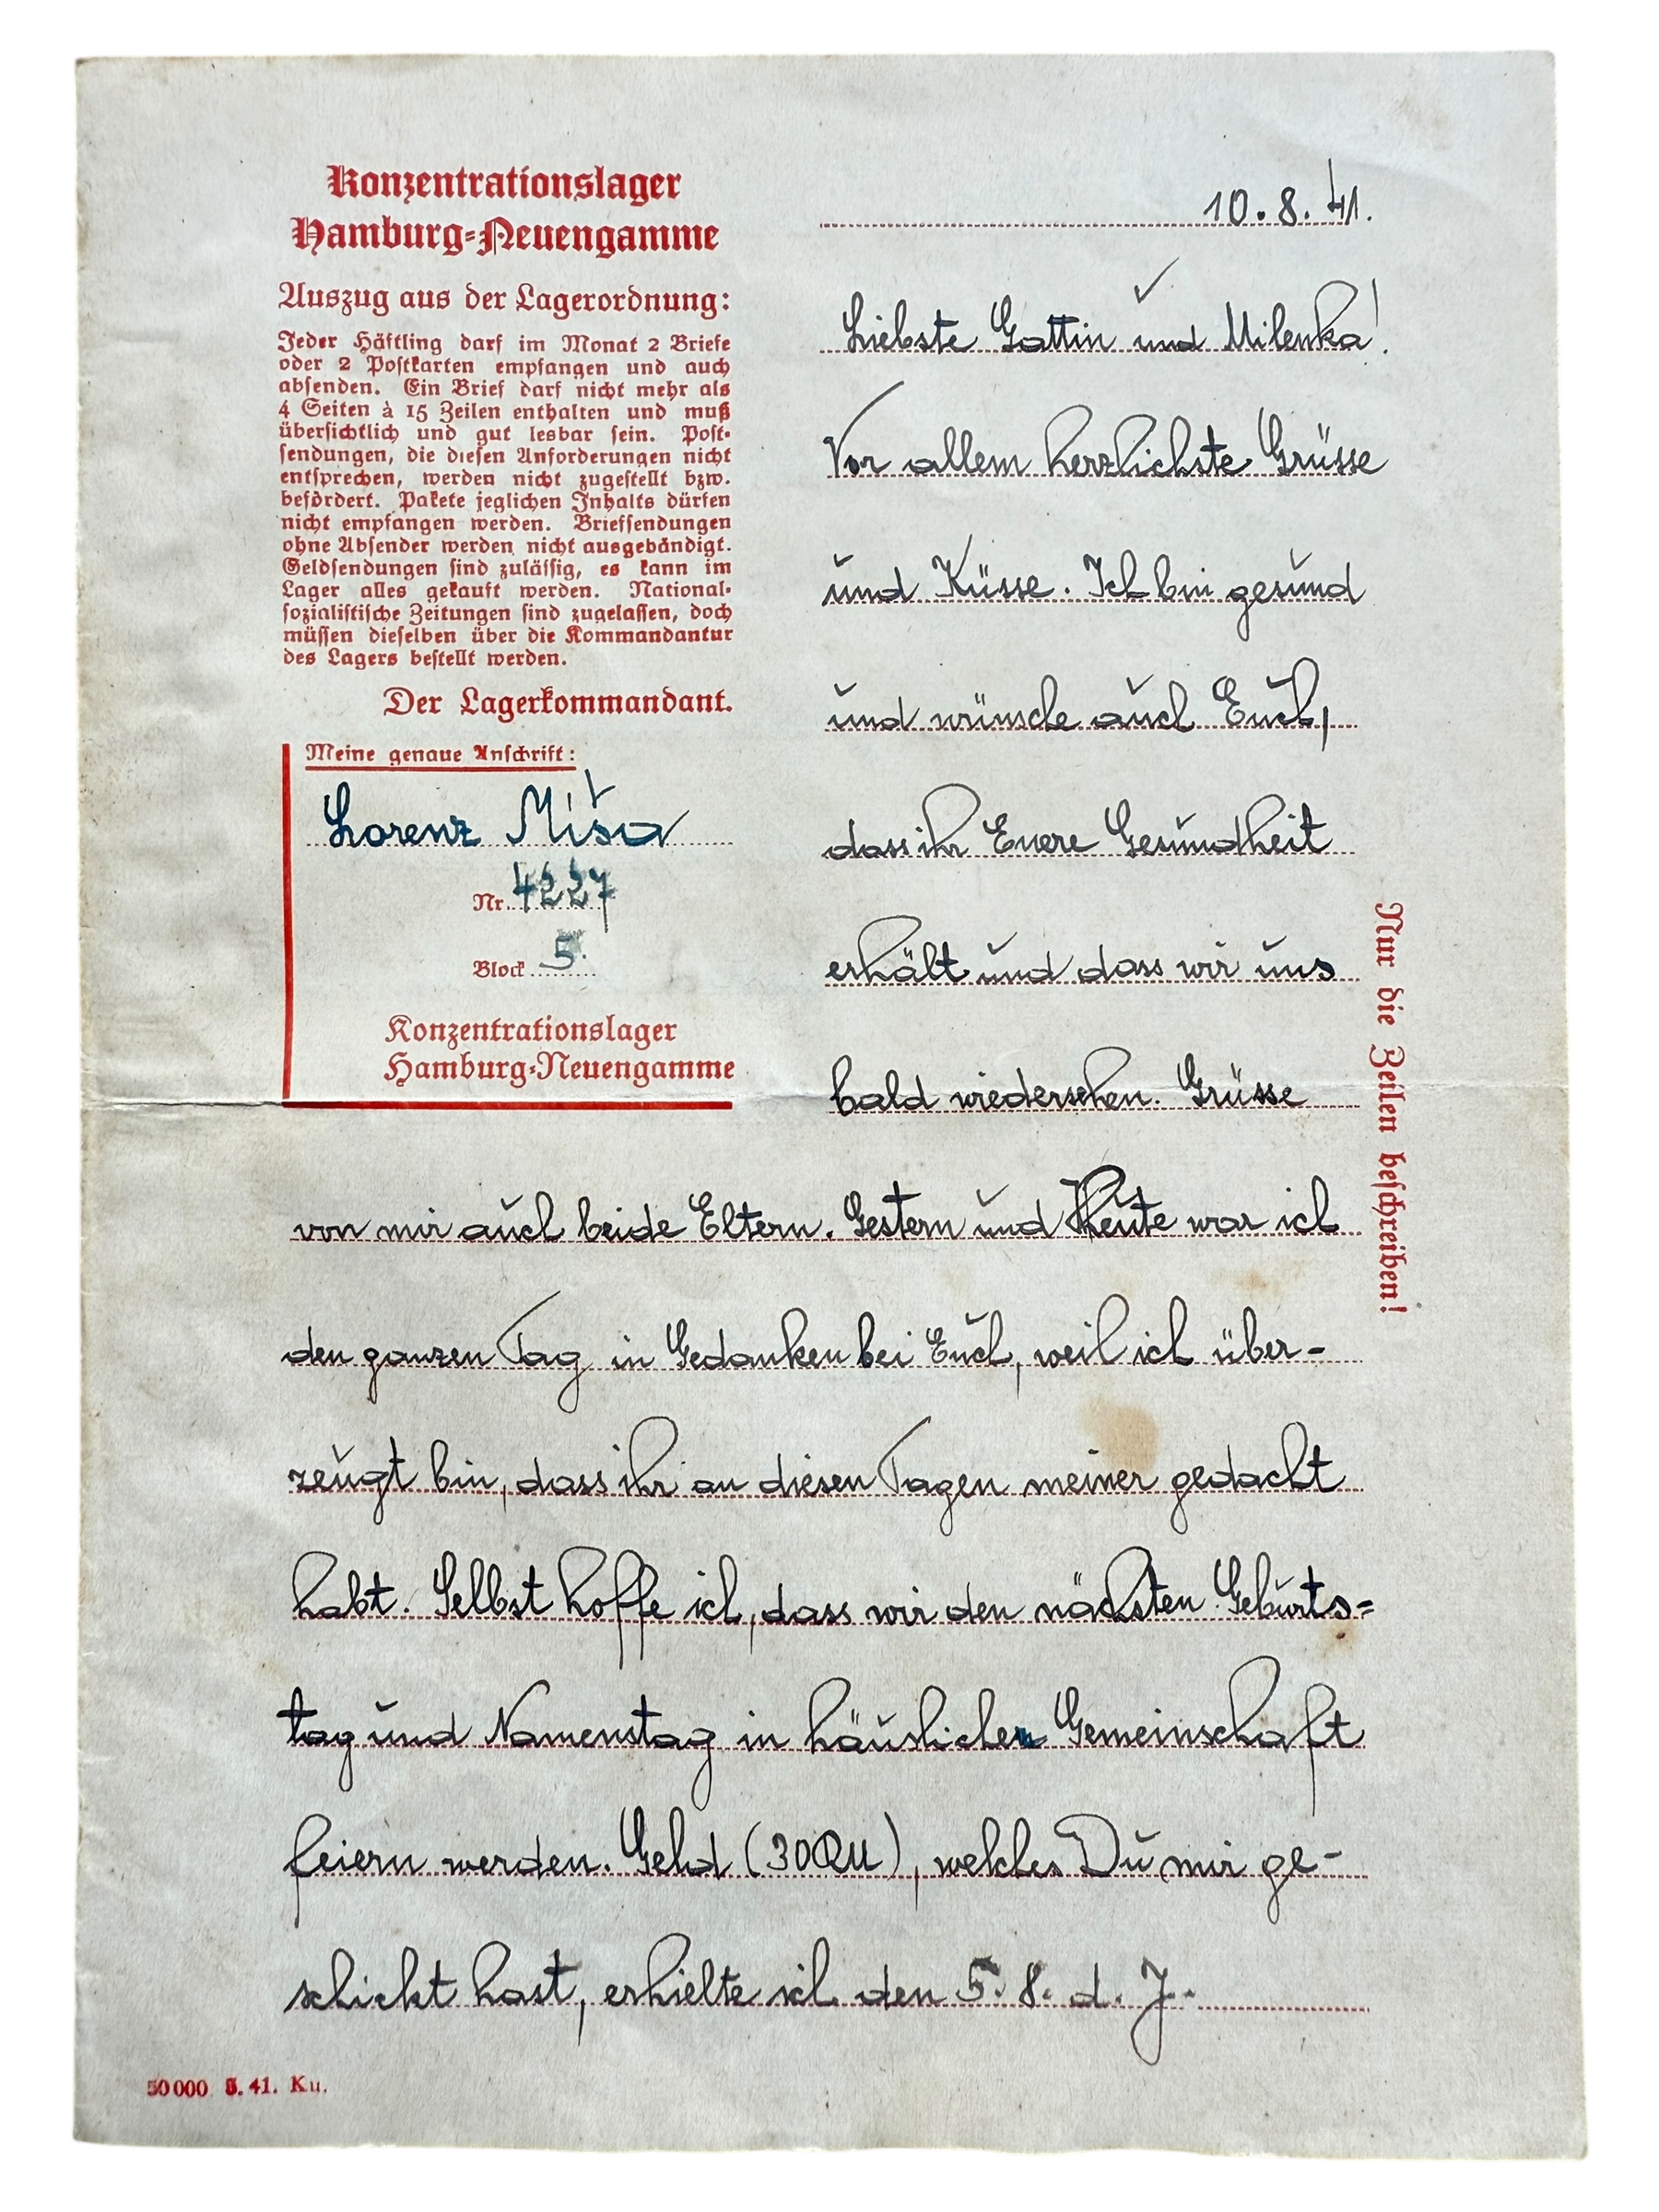 Konzentrationslager
Hamburg-Neuengamme
Auszug aus der Lagerordnung:
Jeder Häftling darf im Monat 2 Briefe
oder 2 Postkarten empfangen und auch
absenden. Ein Brief darf nicht mehr als
4 Seiten à 15 Zeilen enthalten und muß
übersichtlich und gut lesbar sein. Post-
sendungen, die diesen Anforderungen nicht
entsprechen, werden nicht zugestellt bzw.
befördert. Pakete jeglichen Inhalts dürfen
nicht empfangen werden. Briefsendungen
ohne Absender werden nicht ausgehändigt.
Geldsendungen sind zulässig, es kann im
Lager alles gekauft werden. National-
sozialistische Zeitungen sind zugelassen, doch
müssen dieselben über die Kommandantur
des Lagers bestellt werden.
Der Lagerkommandant.
Meine genaue Anschrift:
Lorenz Miša
Nr. 4227
Block 5.
Konzentrationslager
Hamburg-Neuengamme
10. 8. 41.
Liebste Gattin und Milenka!
Vor allem herzlichste Grüsse
und Küsse. Ich bin gesund
und wünsche auch Euch,
dass ihr Euere Gesundheit
erhält und dass wir uns
bald wiedersehen. Grüsse
von mir auch beide Eltern. Gestern und Heute war ich
den ganzen Tag in Gedanken bei Euch, weil ich über-
zeugt bin, dass ihr an diesen Tagen meiner gedacht
habt. Selbst hoffe ich, dass wir den nächsten Geburts=
tag und Namenstag in häuslichen Gemeinschaft
feiern werden. Geld (30 RM), welches Du mir ge-
schickt hast, erhielte ich den 5. 8. d. J.
Nur die Zeilen beschreiben!
50000 5. 41. Ku.